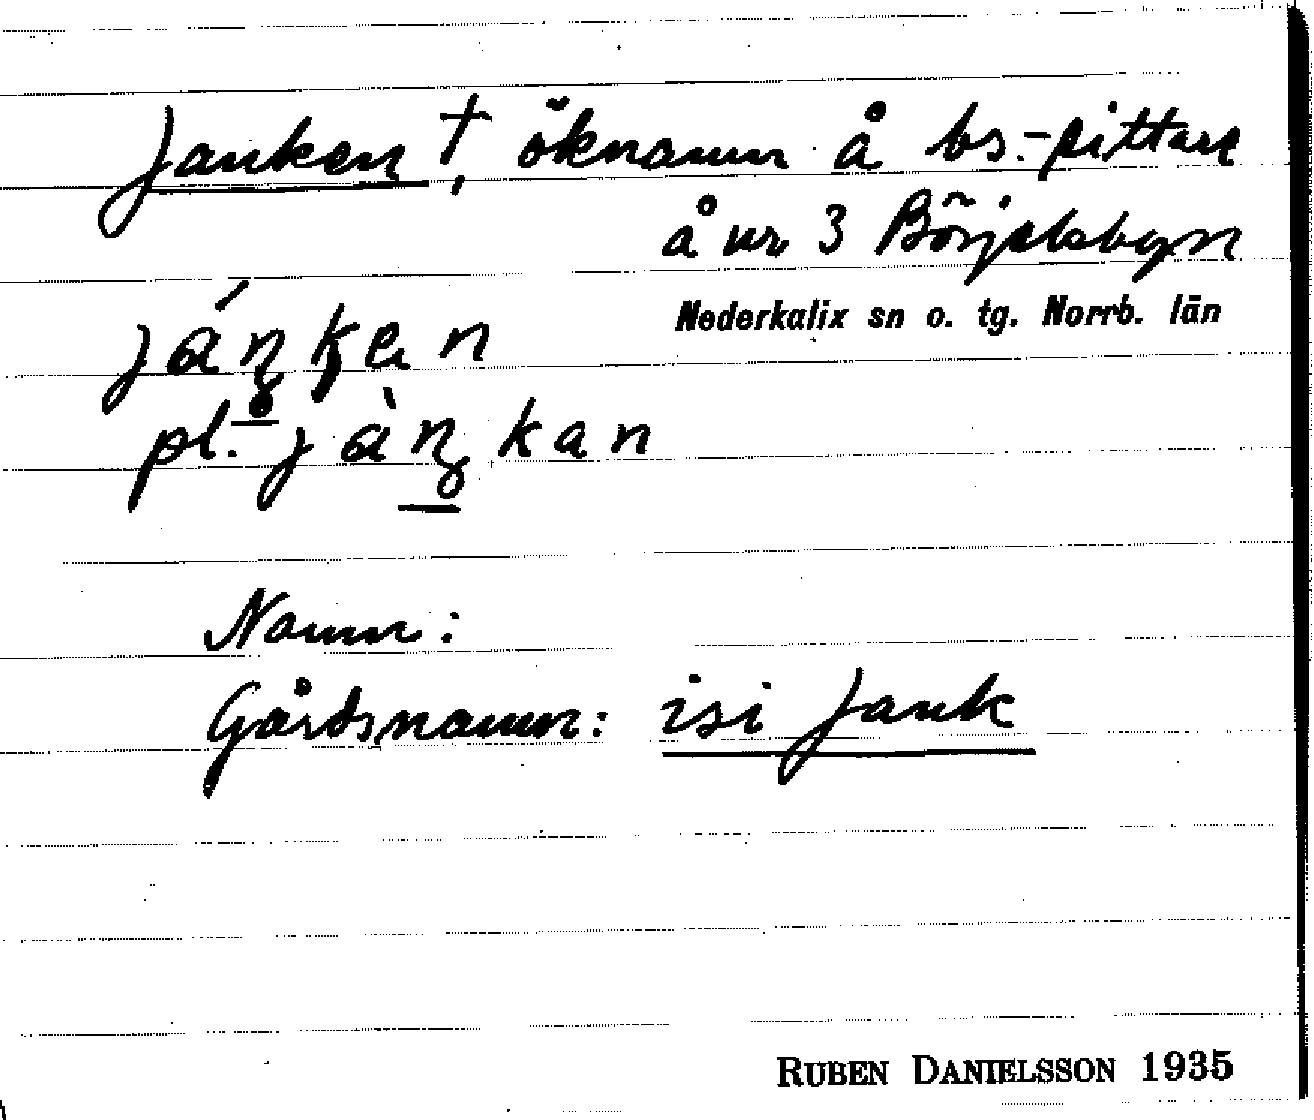 Janken †, öknamn å bs.-sittare
å nr 3 Börjelsbyn
Nederkalix sn o. tg. Norrb. län
pl.
Namn:
Gårdsnamn: isi Jank
RUBEN DANIELSSON 1935